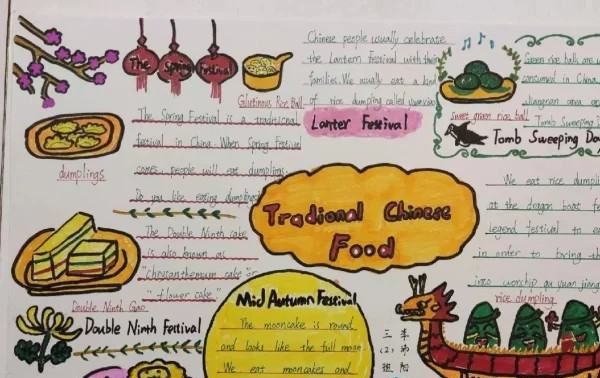 The Spring Festival
Glutinous Rice Ball
The Spring Festival is a traditional
festival in China. When Spring Festival
comes, people will eat dumplings.
Do you like eating dumplings
dumplings
Chinese people usually celebrate
the Lantern Festival with their
families. We usually eat a kind
of rice dumpling called
Lanter Festival
Green rice ball are
consumed in China
jiangnan area
Tomb Sweeping
sweet green rice ball
Tomb Sweeping Da
Tradional Chinese
Food
We eat rice dumpli
at the dragon boat fe
legend festival to
in order to bring
into worship qu yuan jiang
rice dumpling
The Double Ninth cake
is also known as
"chrysanthemum cake" or
"flower cake".
Double Ninth Gao
Double Ninth Festival
Mid Autumn Festival
The mooncake is round
and looks like the full moon.
We eat mooncakes and
三
(2)
李